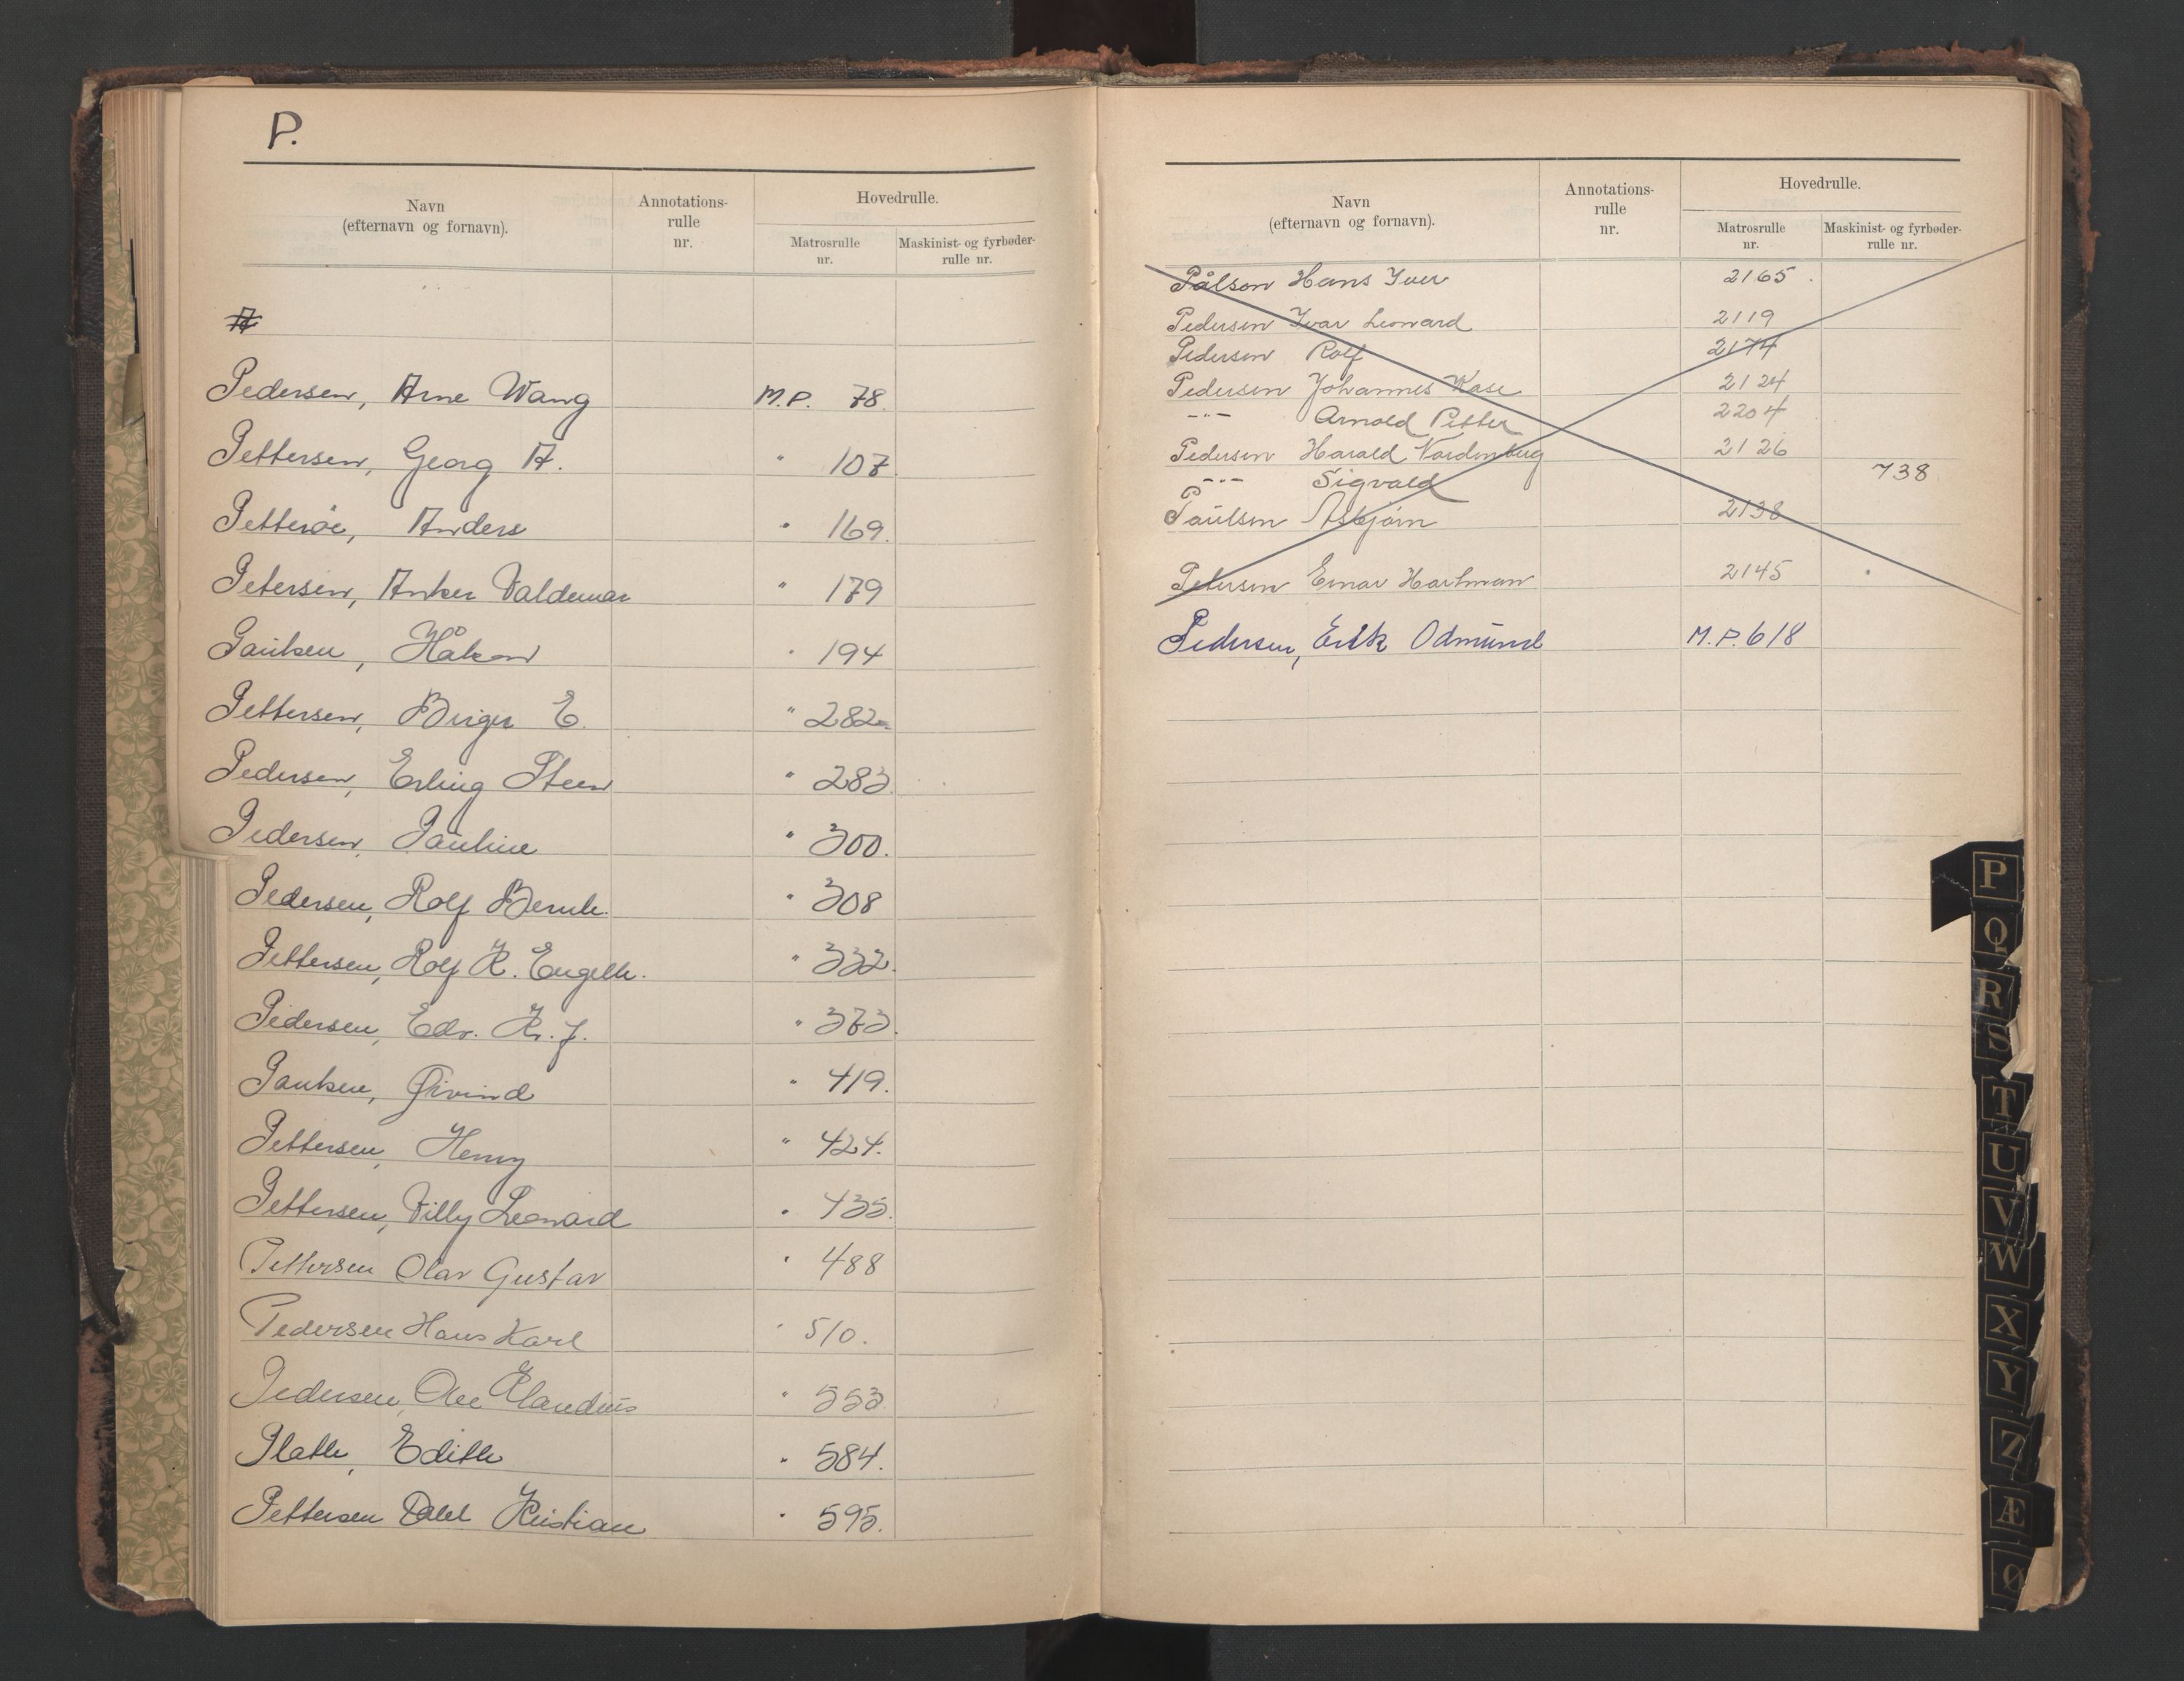 P.
Navn
(efternavn og fornavn).
Annotations-
rulle
nr.
Hovedrulle.
Matrosrulle
nr.
Maskinist- og fyrbøder-
rulle nr.
A
Pedersen, Arne Wang M.P. 78.
Pettersen, Georg A. " 107.
Petterøe, Anders " 169.
Petersen, Anker Valdemar " 179
Paulsen, Håkon " 194
Pettersen, Birger E. " 282
Pedersen, Erling Steen " 283.
Pedersen, Pauline " 300.
Pedersen, Rolf Bernh. " 308
Pettersen, Rolf K. Engelh. " 332.
Pedersen, Edv. Kr. J. " 373.
Paulsen, Øivind " 419.
Pettersen, Henry " 424.
Pettersen, Villy Leonard " 435.
Pettersen Olav Gustav " 488
Pedersen Hans Karl " 510.
Pedersen, Ole Klaudius " 553
Plath, Edith " 584.
Pettersen Odd Kristian " 595.
Navn
(efternavn og fornavn).
Annotations-
rulle
nr.
Hovedrulle.
Matrosrulle
nr.
Maskinist- og fyrbøder-
rulle nr.
Pålson Hans Iver 2165.
Pedersen Ivar Leonard 2119
Pedersen Rolf 2174
Pedersen Johannes Kase 2124
-"- Arnold Petter 2204
Pedersen Harald Nordenberg 2126
-"- Sigvald 738
Paulsen Asbjørn 2138
Petersen Einar Hartman 2145
Pedersen, Erik Odmund M.P. 618
P
Q
R
S
T
U
V
W
X
Y
Z
Æ
Ø